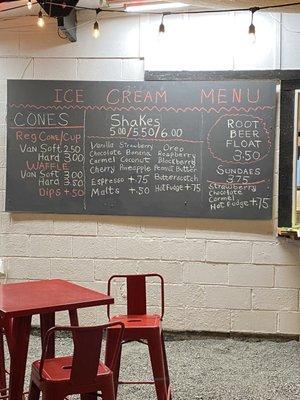 ICE CREAM MENU
CONES
Reg Cone/Cup
Van Soft 2.50
Hard 3.00
WAFFLE
Van Soft 3.00
Hard 3.50
Dips +.50
Shakes
5.00/5.50/6.00
Vanilla Strawberry Oreo
Chocolate Banana Raspberry
Carmel Coconut Blackberry
Cherry Pineapple Peanut Butter
Espresso +.75 Butterscotch
Malts +.50 Hot Fudge +.75
ROOT
BEER
FLOAT
3.50
SUNDAES
3.75
Strawberry
Chocolate
Carmel
Hot Fudge +.75